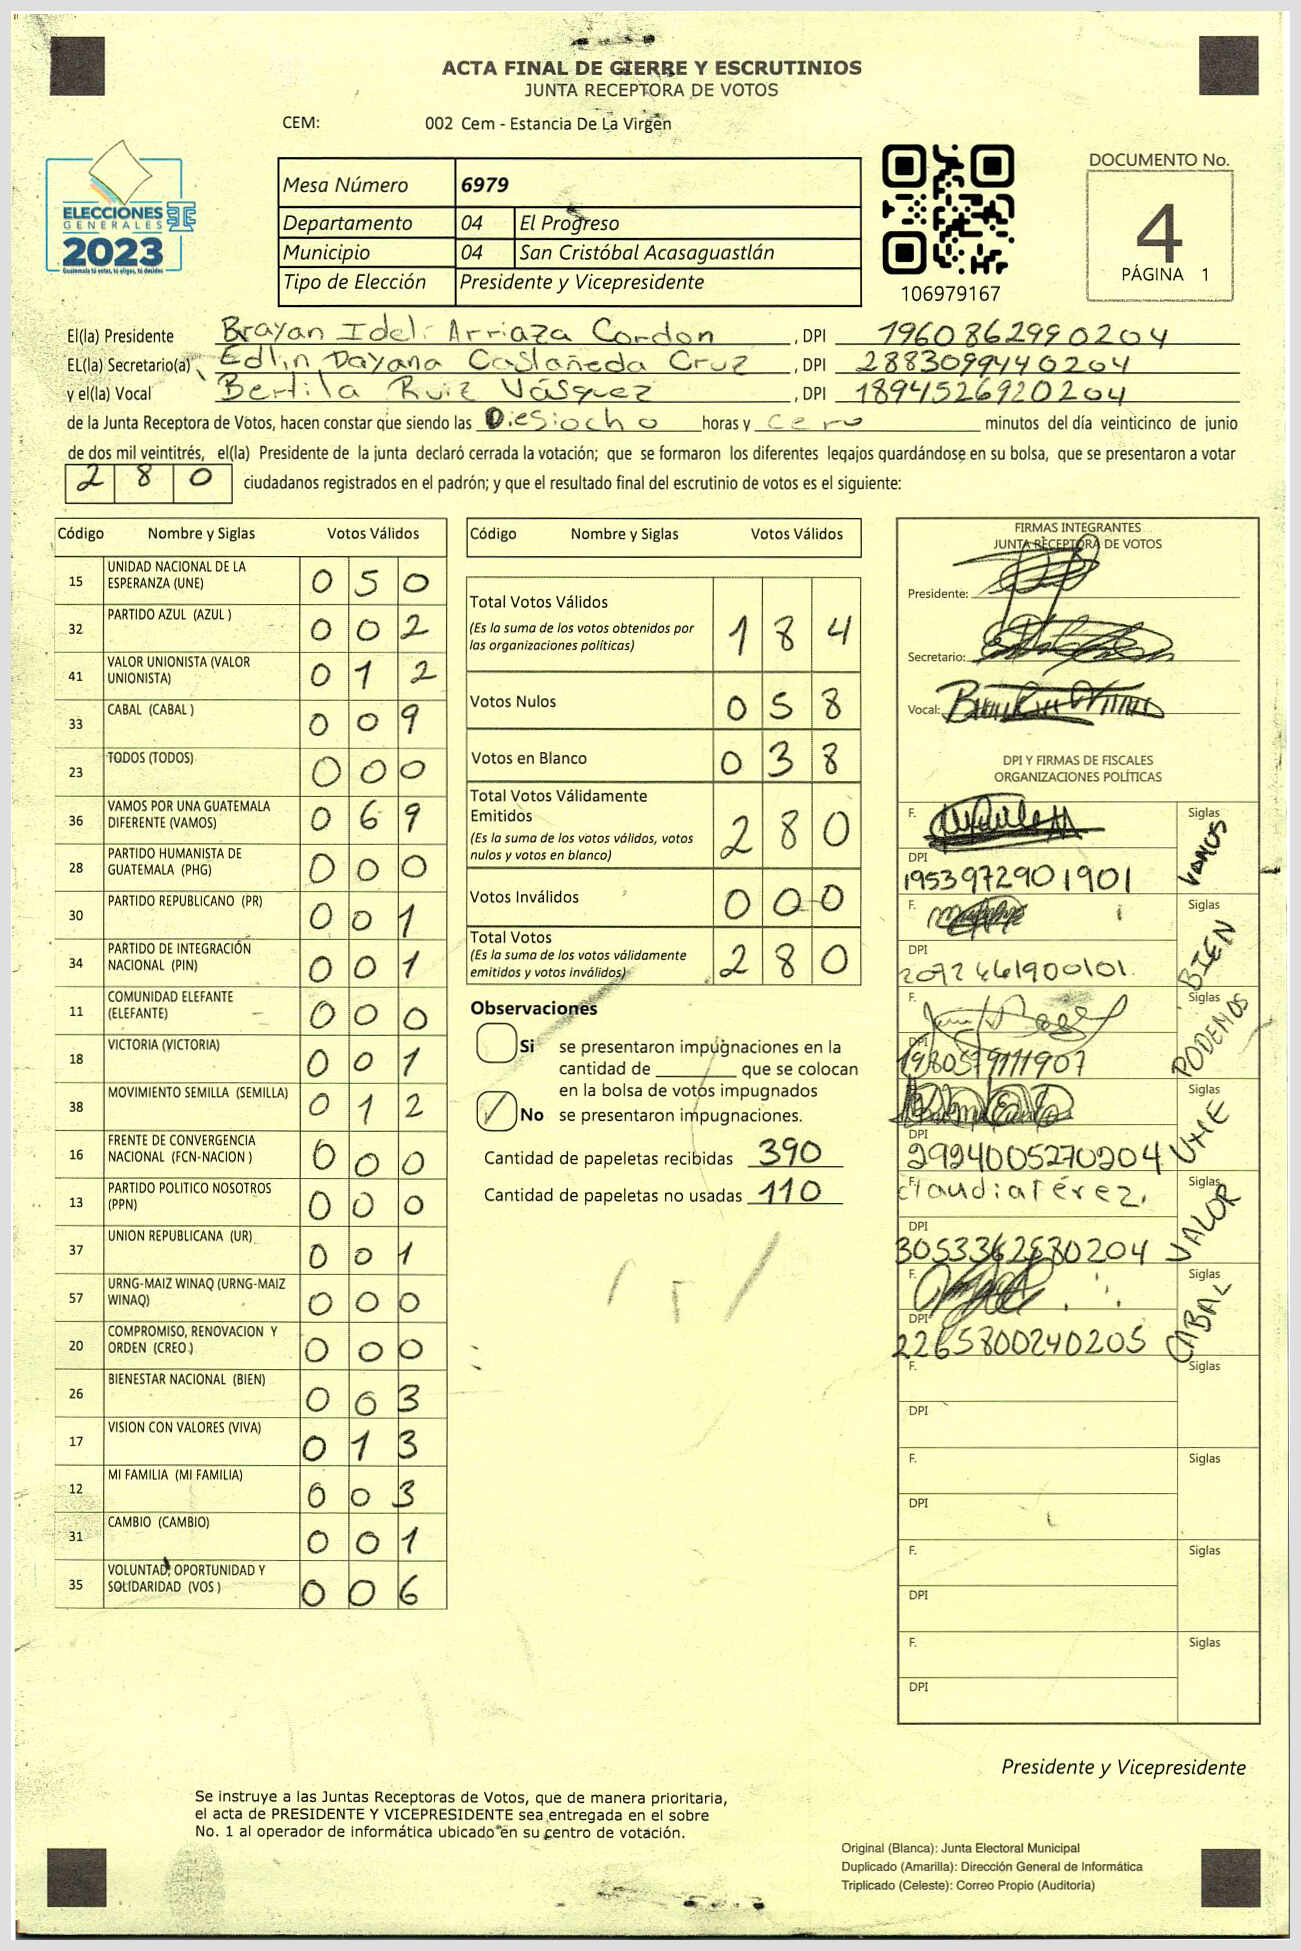 ACTA FINAL DE CIERRE Y ESCRUTINIOS
JUNTA RECEPTORA DE VOTOS
CEM: 002 Cem - Estancia De La Virgen
ELECCIONES
GENERALES
2023
Guatemala tú votas, tú eliges, tú decides
Mesa Número 6979
Departamento 04 El Progreso
Municipio 04 San Cristóbal Acasaguastlán
Tipo de Elección Presidente y Vicepresidente
106979167
DOCUMENTO No.
4
PÁGINA 1
El(la) Presidente Brayan Ideli Arriaza Cordon, DPI 1960862990204
EL(la) Secretario(a) Edlin Dayana Castañeda Cruz, DPI 2883099440204
y el(la) Vocal Bertila Ruiz Vásquez, DPI 1894526920204
de la Junta Receptora de Votos, hacen constar que siendo las Diesiocho horas y cero minutos del día veinticinco de junio
de dos mil veintitrés, el(la) Presidente de la junta declaró cerrada la votación; que se formaron los diferentes legajos guardándose en su bolsa, que se presentaron a votar
280 ciudadanos registrados en el padrón; y que el resultado final del escrutinio de votos es el siguiente:
Código Nombre y Siglas Votos Válidos
15 UNIDAD NACIONAL DE LA ESPERANZA (UNE) 050
32 PARTIDO AZUL (AZUL ) 002
41 VALOR UNIONISTA (VALOR UNIONISTA) 012
33 CABAL (CABAL ) 009
23 TODOS (TODOS) 000
36 VAMOS POR UNA GUATEMALA DIFERENTE (VAMOS) 069
28 PARTIDO HUMANISTA DE GUATEMALA (PHG) 000
30 PARTIDO REPUBLICANO (PR) 001
34 PARTIDO DE INTEGRACIÓN NACIONAL (PIN) 001
11 COMUNIDAD ELEFANTE (ELEFANTE) 000
18 VICTORIA (VICTORIA) 001
38 MOVIMIENTO SEMILLA (SEMILLA) 012
16 FRENTE DE CONVERGENCIA NACIONAL (FCN-NACION ) 000
13 PARTIDO POLITICO NOSOTROS (PPN) 000
37 UNION REPUBLICANA (UR) 001
57 URNG-MAIZ WINAQ (URNG-MAIZ WINAQ) 000
20 COMPROMISO, RENOVACION Y ORDEN (CREO ) 000
26 BIENESTAR NACIONAL (BIEN) 003
17 VISION CON VALORES (VIVA) 013
12 MI FAMILIA (MI FAMILIA) 003
31 CAMBIO (CAMBIO) 001
35 VOLUNTAD, OPORTUNIDAD Y SOLIDARIDAD (VOS ) 006
Código Nombre y Siglas Votos Válidos
Total Votos Válidos 184
(Es la suma de los votos obtenidos por
las organizaciones políticas)
Votos Nulos 058
Votos en Blanco 038
Total Votos Válidamente
Emitidos 280
(Es la suma de los votos válidos, votos
nulos y votos en blanco)
Votos Inválidos 000
Total Votos 280
(Es la suma de los votos válidamente
emitidos y votos inválidos)
Observaciones
Si se presentaron impugnaciones en la
cantidad de ________ que se colocan
en la bolsa de votos impugnados
No se presentaron impugnaciones.
Cantidad de papeletas recibidas 390
Cantidad de papeletas no usadas 110
FIRMAS INTEGRANTES
JUNTA RECEPTORA DE VOTOS
Presidente:
Secretario:
Vocal:
DPI Y FIRMAS DE FISCALES
ORGANIZACIONES POLÍTICAS
F. Siglas VAMOS
DPI 1953972901901
F. Siglas BIEN
DPI 2092461900101
F. Siglas PODEMOS
DPI 1980579111907
F. Siglas UNE
DPI 2924005270204
F. claudia Pérez. Siglas VALOR
DPI 3053362580204
F. Siglas CABAL
DPI 2265800240205
F. Siglas
DPI
F. Siglas
DPI
F. Siglas
DPI
F. Siglas
DPI
Presidente y Vicepresidente
Se instruye a las Juntas Receptoras de Votos, que de manera prioritaria,
el acta de PRESIDENTE Y VICEPRESIDENTE sea entregada en el sobre
No. 1 al operador de informática ubicado en su centro de votación.
Original (Blanca): Junta Electoral Municipal
Duplicado (Amarilla): Dirección General de Informática
Triplicado (Celeste): Correo Propio (Auditoría)